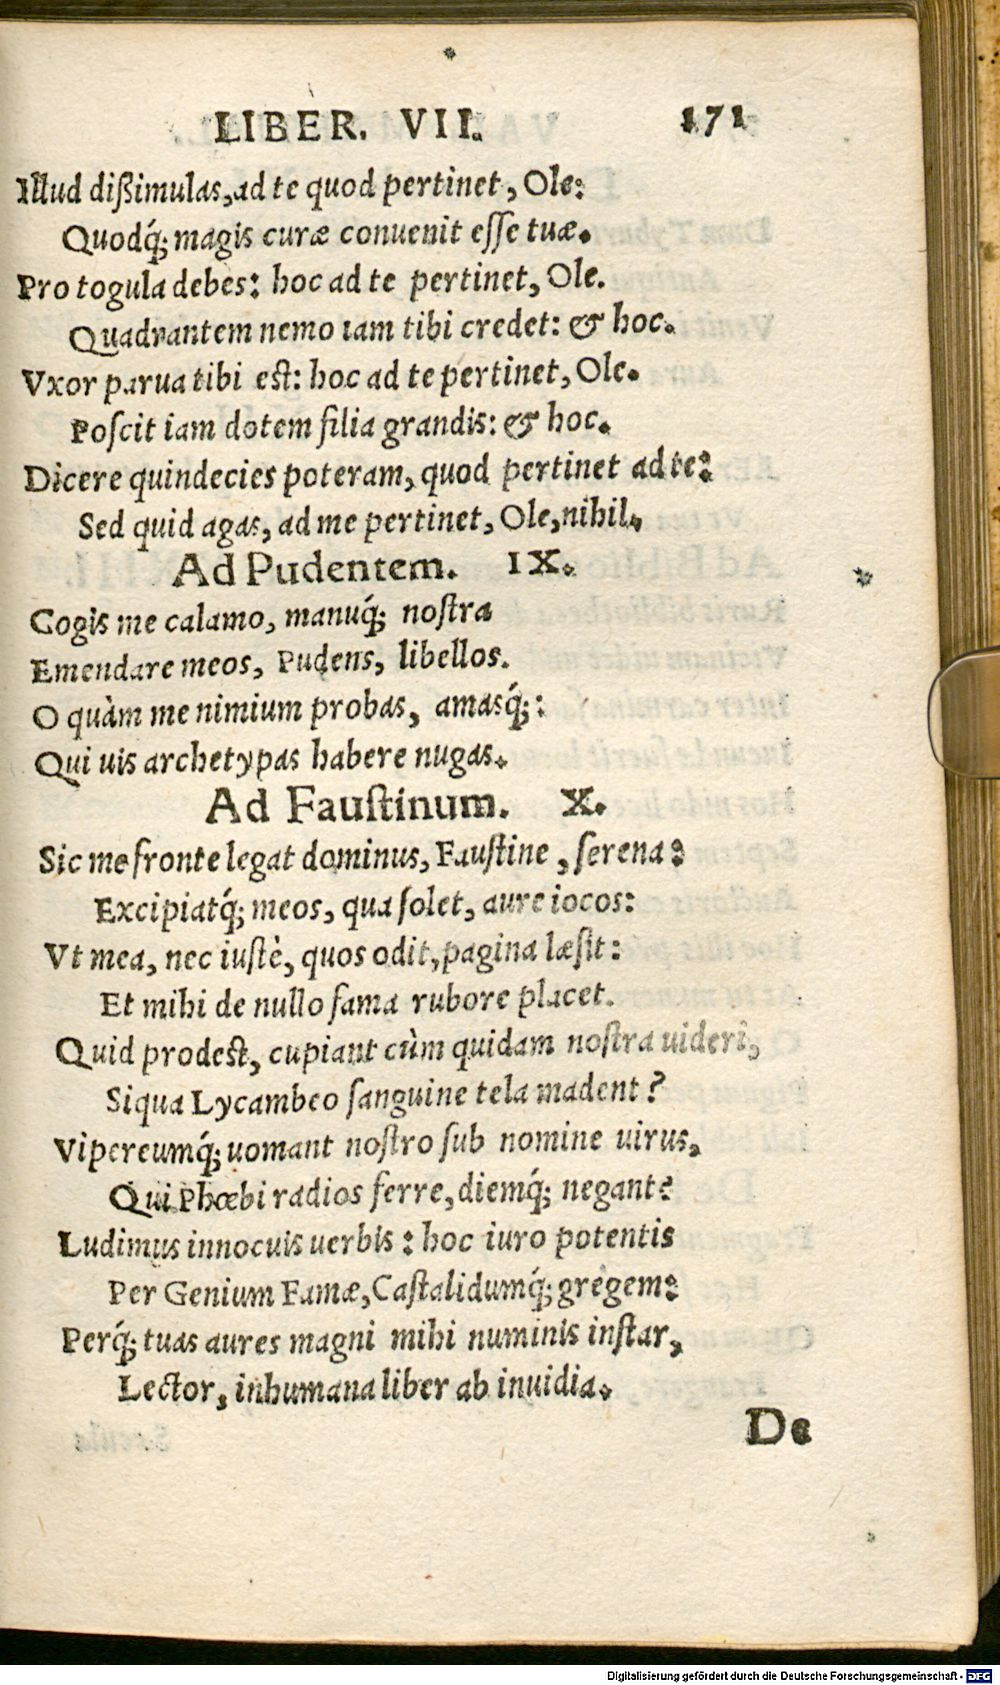 LIBER. VII. 171
Illud dißimulas, ad te quod pertinet, Ole:
Quodq́; magis curæ conuenit esse tuæ.
Pro togula debes: hoc ad te pertinet, Ole.
Quadrantem nemo iam tibi credet: & hoc.
Vxor parua tibi est: hoc ad te pertinet, Ole.
Poscit iam dotem filia grandis: & hoc.
Dicere quindecies poteram, quod pertinet ad te:
Sed quid agas, ad me pertinet, Ole, nihil.
Ad Pudentem. IX.
Cogis me calamo, manuq́; nostra
Emendare meos, Pudens, libellos.
O quàm me nimium probas, amasq́;:
Qui uis archetypas habere nugas.
Ad Faustinum. X.
Sic me fronte legat dominus, Faustine, serena:
Excipiatq́; meos, qua solet, aure iocos:
Vt mea, nec iustè, quos odit, pagina læsit:
Et mihi de nullo fama rubore placet.
Quid prodest, cupiant cùm quidam nostra uideri,
Siqua Lycambeo sanguine tela madent?
Vipereumq́; uomant nostro sub nomine uirus,
Qui Phœbi radios ferre, diemq́; negant?
Ludimus innocuis uerbis: hoc iuro potentis
Per Genium Famæ, Castalidumq́; gregem:
Perq́; tuas aures magni mihi numinis instar,
Lector, inhumana liber ab inuidia.
De
Digitalisierung gefördert durch die Deutsche Forschungsgemeinschaft - DFG